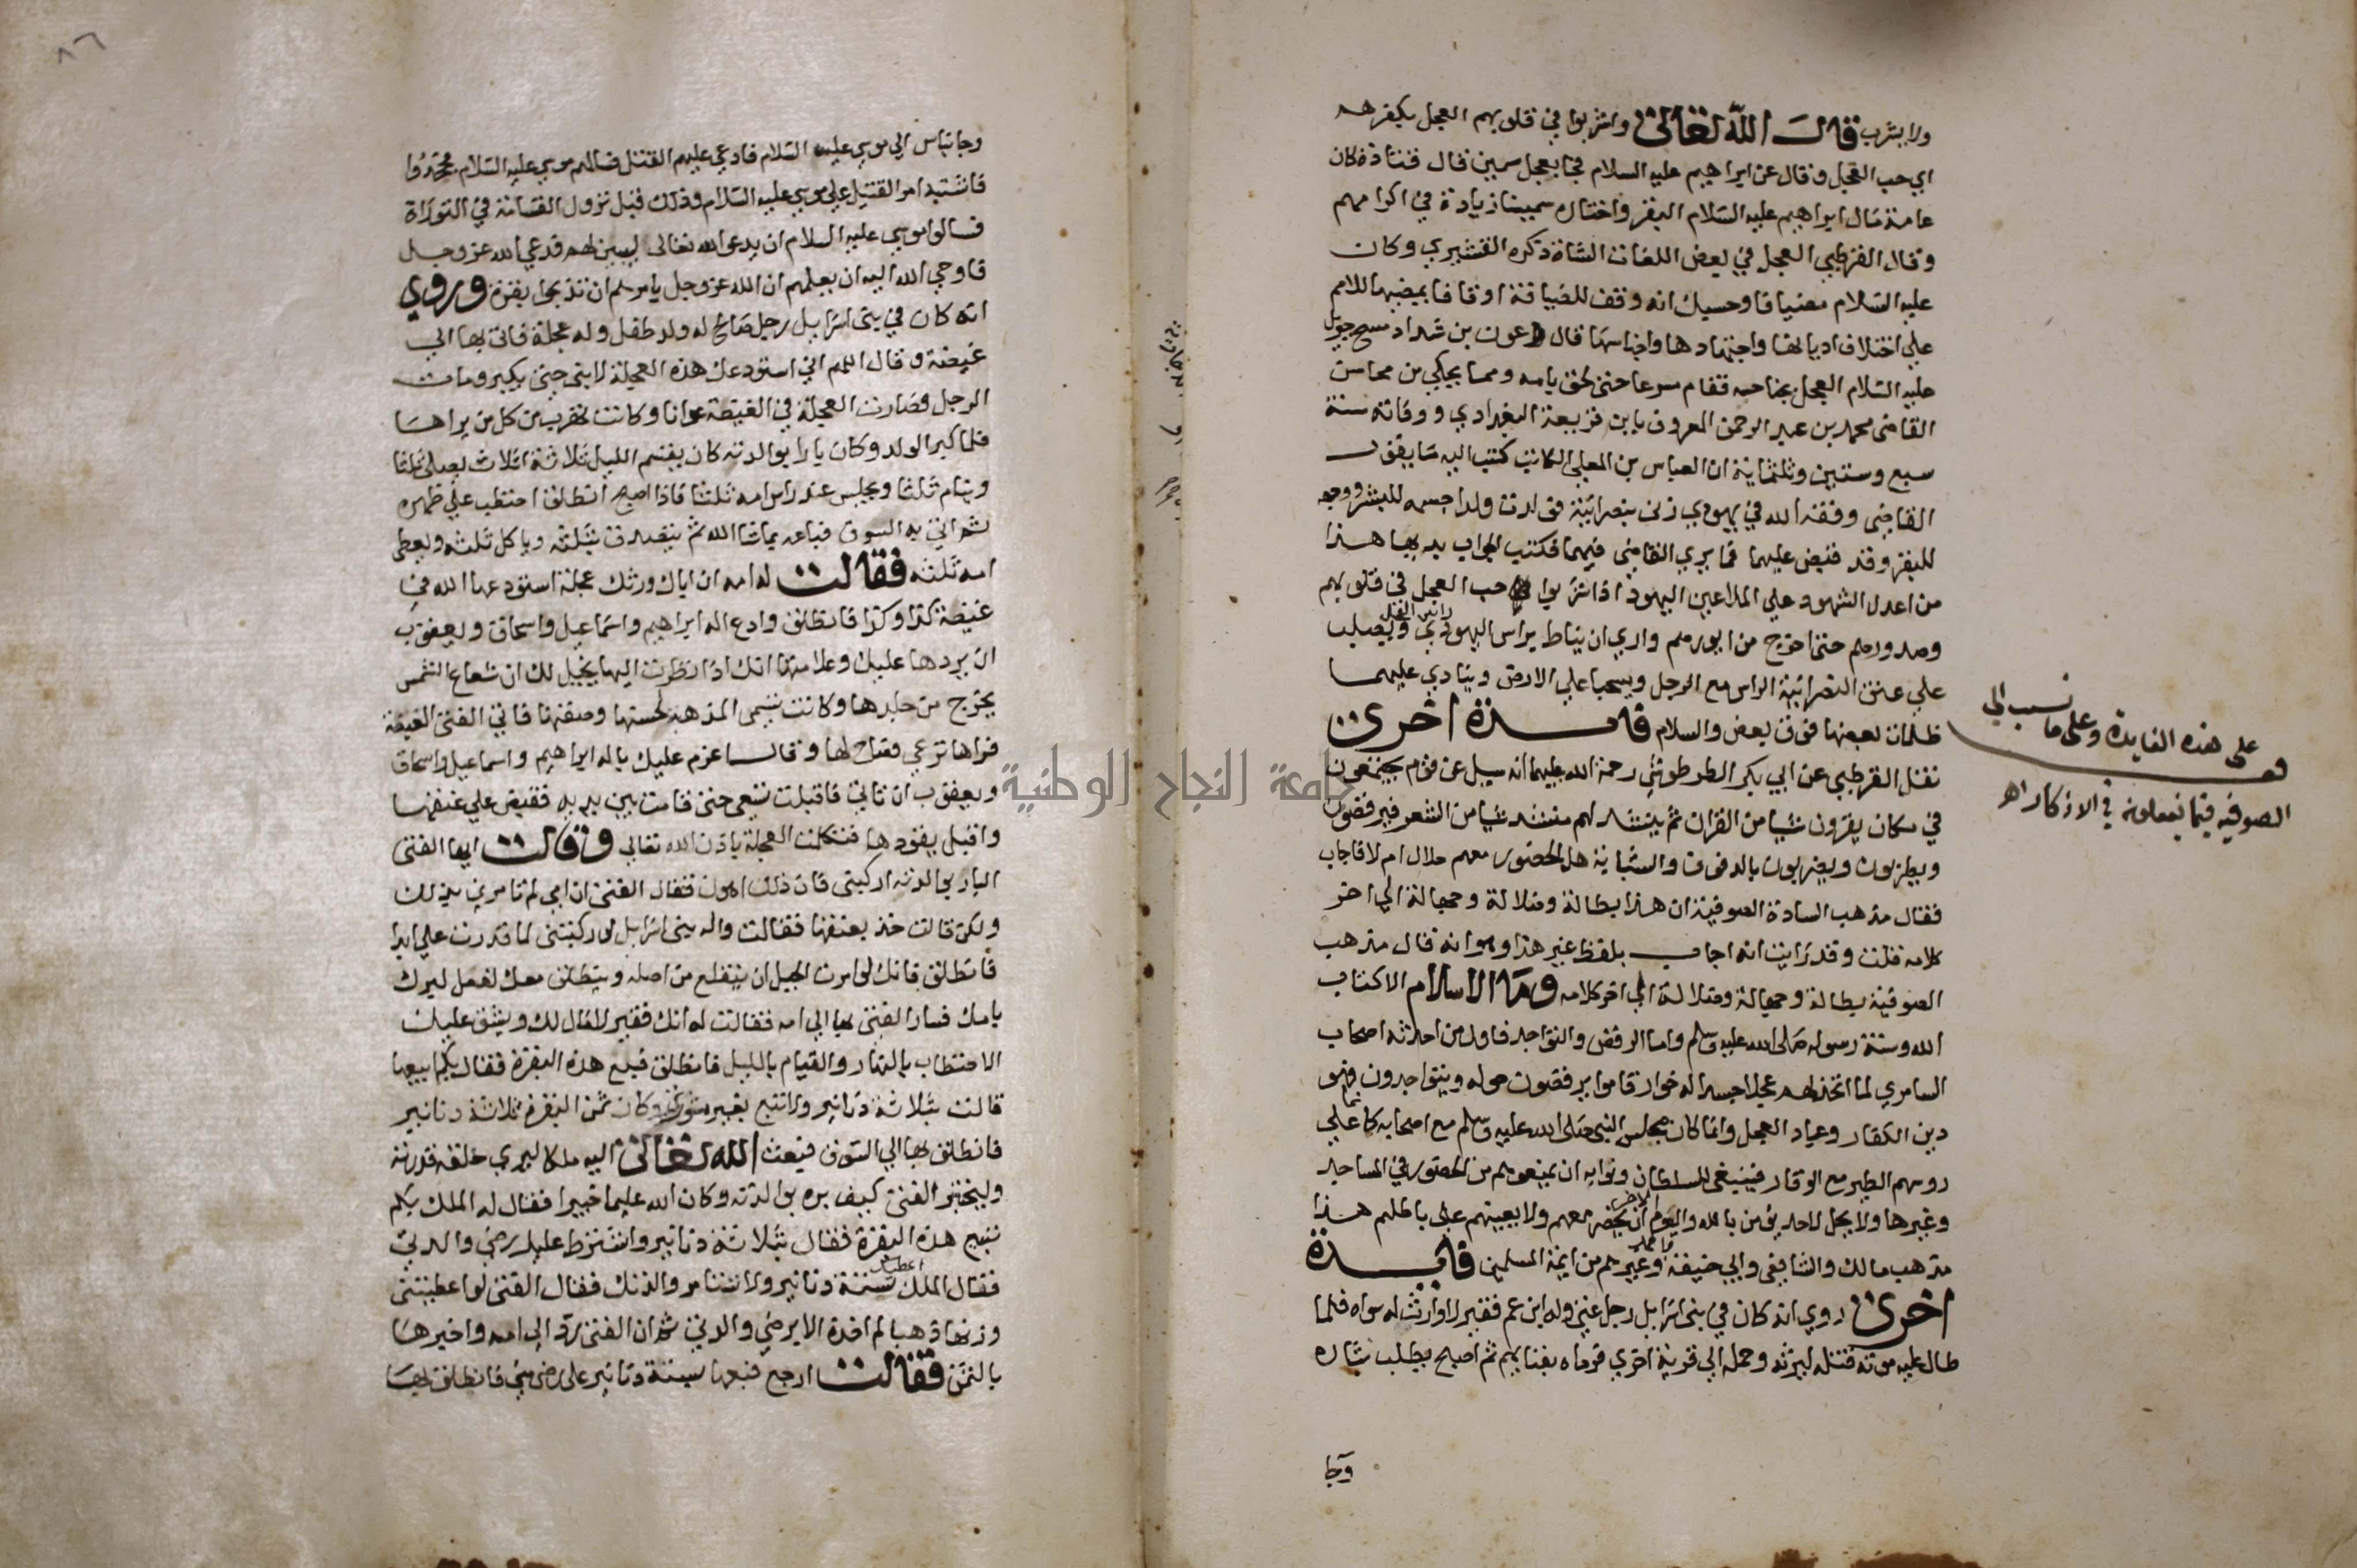 ولا يشرب قال الله تعالى واشربوا في قلوبهم العجل بكفرهم
اي حب العجل وقال عن ابراهيم عليه السلام فجا بعجل سمين قال قتادة كان
عامة مال ابراهيم عليه السلام البقر واختاره سمينا زيادة في اكرامهم
وقال القرطبي العجل في بعض اللغات الشاة ذكره القشيري وكان
عليه السلام مضيافا وحسبك انه وقف للضيافة اوقافا يمضيها للامم
علي اختلاف اديانها واجنادها واجناسها قال عون بن شداد مسح جبريل
عليه السلام العجل بجناحه فقام مسرعا حتى لحق بامه ومما يحكي من محاسن
القاضى محمد بن عبد الرحمن المعروف بابن قريعة البغدادي ووفاته سنة
سبع وستين وثلثماية ان العباس بن المعلي الكاتب كتب اليه ما يقول
القاضى وفقه الله في يهودي زنى بنصرانية فولدت ولدا جسمه للبشر ووجهه
للبقر وقد قبض عليهما فما يري القاضى فيهما فكتب الجواب بديها هذا
من اعدل الشهود علي الملاعين اليهود اذ اشربوا حب العجل في قلوبهم
وصدورهم حتى اخرج من ايورهم واري ان يناط براس اليهودي راس العجل ويصلب
علي عنق النصرانية الراس مع الرجل ويسحبا علي الارض وينادي عليهما
ظلمات بعضها فوق بعض والسلام فايدة اخرى
نقل القرطبي عن ابي بكر الطرطوشي رحمة الله عليهما انه سيل عن قوم يجتمعون
في مكان يقرون شيا من القران ثم ينشد لهم منشد شيا من الشعر فيرقصون
ويطربون ويضربون بالدفوف والشبابة هل الحضور معهم حلال ام لا فاجاب
فقال مذهب السادة الصوفية ان هذا بطالة وضلالة وجهالة الي اخر
كلامه قلت وقد رايت انه اجاب بلفظ غير هذا وهو انه قال مذهب
الصوفية بطالة وجهالة وضلالة الي اخر كلامه وما الاسلام الا كتاب
الله وسنة رسوله صلى الله عليه وسلم واما الرقص والتواجد فاول من احدثه اصحاب
السامري لما اتخذ لهم عجلا جسدا له خوار قاموا يرقصون حوله ويتواجدون فهو
دين الكفار وعباد العجل وانما كان مجلس النبي صلى الله عليه وسلم مع اصحابه كانما علي
روسهم الطير مع الوقار فينبغى للسلطان ونوابه ان يمنعوهم من الحضور في المساجد
وغيرها ولا يحل لاحد يومن بالله واليوم الاخر ان يحضر معهم ولا يعينهم على باطلهم هذا
مذهب مالك والشافعى وابي حنيفة واحمد وغيرهم من ايمة المسلمين فايدة
اخرى روي انه كان في بنى اسرايل رجل غنى وله ابن عم فقير لا وارث له سواه فلما
طال عليه موته قتله ليرثه وحمله الي قرية اخري فرماه بفنايهم ثم اصبح يطلب بثاره
وجا
قف على هذه الفايدة وعلى ما نسب الى
الصوفيه فيما يفعلونه في الاذكار اهـ
٨٦
وجا بناس الي موسي عليه السلام فادعي عليهم القتل فسالهم موسي عليه السلام فجحدوا
فاشتبه امر القتيل علي موسي عليه السلام وذلك قبل نزول القسامة في التوراة
فسالوا موسي عليه السلام ان يدعو الله تعالى ليبين لهم فدعي الله عز وجل
فاوحي الله اليه ان يعلمهم ان الله عز وجل يامركم ان تذبحوا بقرة وروي
انه كان في بنى اسرايل رجل صالح له ولد طفل وله عجلة فاتى بها الي
غيضة وقال اللهم اني استودعك هذه العجلة لابنى حتى يكبر ومات
الرجل فصارت العجلة في الغيضة عوانا وكانت تهرب من كل من يراها
فلما كبر الولد وكان بارا بوالدته كان يقسم الليل ثلاثة اثلاث يصلي ثلثا
وينام ثلثا ويجلس عند راس امه ثلثا فاذا اصبح انطلق احتطب علي ظهره
ثم اتي به السوق فباعه بما شا الله ثم يتصدق بثلثه وياكل ثلثه ويعطي
امه ثلثه فقالت له امه ان اباك ورثك عجلة استودعها الله في
غيضة كذا وكذا فانطلق وادع اله ابراهيم واسماعيل واسحاق ويعقوب
ان يردها عليك وعلامتها انك اذا نظرت اليها يخيل لك ان شعاع الشمس
يخرج من جلدها وكانت تسمى المذهبة لحسنها وصفرتها فاتي الفتى الغيضة
فراها ترعي فصاح لها وقال اعزم عليك باله ابراهيم واسماعيل واسحاق
ويعقوب ان تاتي فاقبلت تسعى حتى قامت بين يديه فقبض علي عنقها
واقبل يقودها فتكلمت العجلة باذن الله تعالي وقالت ايها الفتى
البار بوالدته اركبنى فان ذلك اهون فقال الفتى ان امي لم تامرني بذلك
ولكن قالت خذ بعنقها فقالت واله بنى اسرايل لو ركبتنى لما قدرت علي ابدا
فانطلق فانك لو امرت الجبل ان ينقلع من اصله وينطلق معك لفعل لبرك
بامك فسار الفتى بها الي امه فقالت له انك فقير لا مال لك ويشق عليك
الاحتطاب بالنهار والقيام بالليل فانطلق فبع هذه البقرة فقال بكم ابيعها
قالت بثلاثة دنانير ولا تبع بغير مشورتى وكان ثمن البقرة ثلاثة دنانير
فانطلق بها الي السوق فبعث الله تعالى اليه ملكا ليري خلقه قدرته
وليختبر الفتى كيف بره بوالدته وكان الله عليما خبيرا فقال له الملك بكم
تبيع هذه البقرة فقال بثلاثة دنانير واشترط عليك رضي والدتي
فقال الملك اعطيك ستة دنانير ولا تستامر والدتك فقال الفتى لو اعطيتنى
وزنها ذهبا لم اخذه الا برضي والدتي ثم ان الفتى رد الي امه واخبرها
بالثمن فقالت ارجع فبعها بستة دنانير على رضى مني فانطلق بها
جامعة النجاح الوطنية